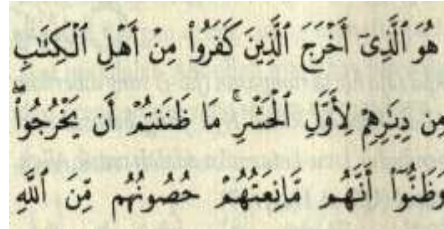 هُوَ ٱلَّذِىٓ أَخْرَجَ ٱلَّذِينَ كَفَرُوا۟ مِنْ أَهْلِ ٱلْكِتَٰبِ
مِن دِيَٰرِهِمْ لِأَوَّلِ ٱلْحَشْرِ ۚ مَا ظَنَنتُمْ أَن يَخْرُجُوا۟ ۖ
وَظَنُّوٓا۟ أَنَّهُم مَّانِعَتُهُمْ حُصُونُهُم مِّنَ ٱللَّهِ